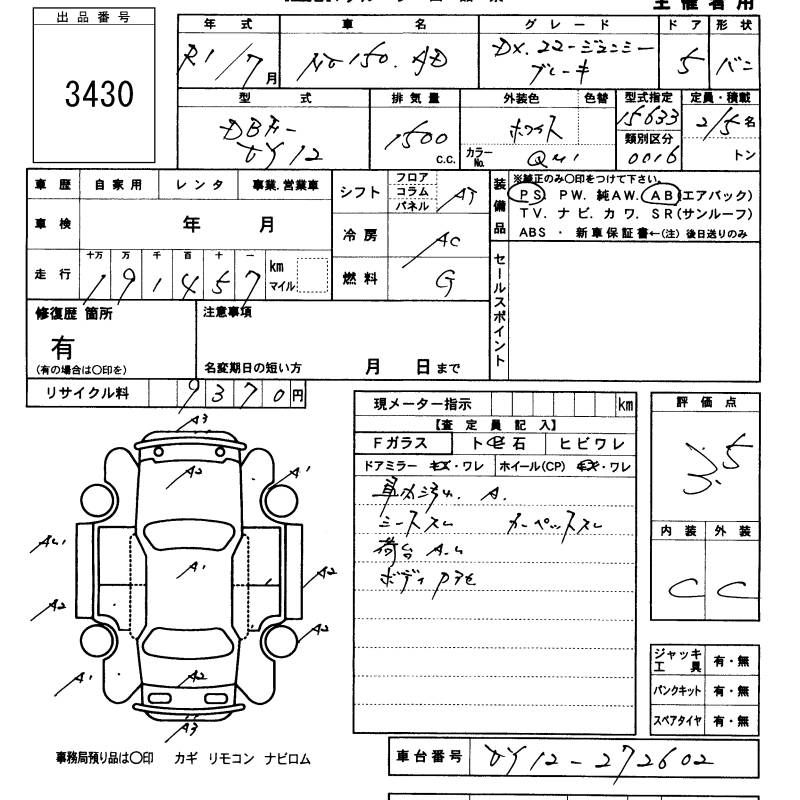 主催者用
出品番号
3430
年式 車名 グレード ドア 形状
R1/7月 No150.AD DX.22-ジェンシー ブレーキ 5 バン
型式 排気量 外装色 色替 型式指定 定員・積載
DBF- VY12 1500c.c. ホワイト 15633 2/5名
カラーNo. QM1 類別区分 0016 トン
車歴 自家用 レンタ 事業.営業車
車検 年 月
走行 十万 万 千 百 十 一 km マイル
191457
シフト フロア コラム パネル AT
冷房 AC
燃料 G
装備品 ※純正のみ〇印をつけて下さい。
PS. PW. 純AW. AB(エアバック)
TV. ナビ. カワ. SR(サンルーフ)
ABS ・ 新車保証書←(注) 後日送りのみ
セールスポイント
修復歴 箇所
有
(有の場合は〇印を)
注意事項
名変期日の短い方 月 日まで
リサイクル料 9370円
現メーター指示 km
【査定員記入】
Fガラス ト石 ヒビワレ
ドアミラー キズ・ワレ ホイール(CP) キズ・ワレ
車内汚れ. A.
シートスレ カーペットスレ
荷台 A.U
ボディ
評価点
3.5
内装 外装
C C
A3
A2
A1
AU1
A1
A2
A2
A2
A1
A2
A3
ジャッキ工具 有・無
パンクキット 有・無
スペアタイヤ 有・無
事務局預り品は〇印 カギ リモコン ナビロム
車台番号 VY12-272602